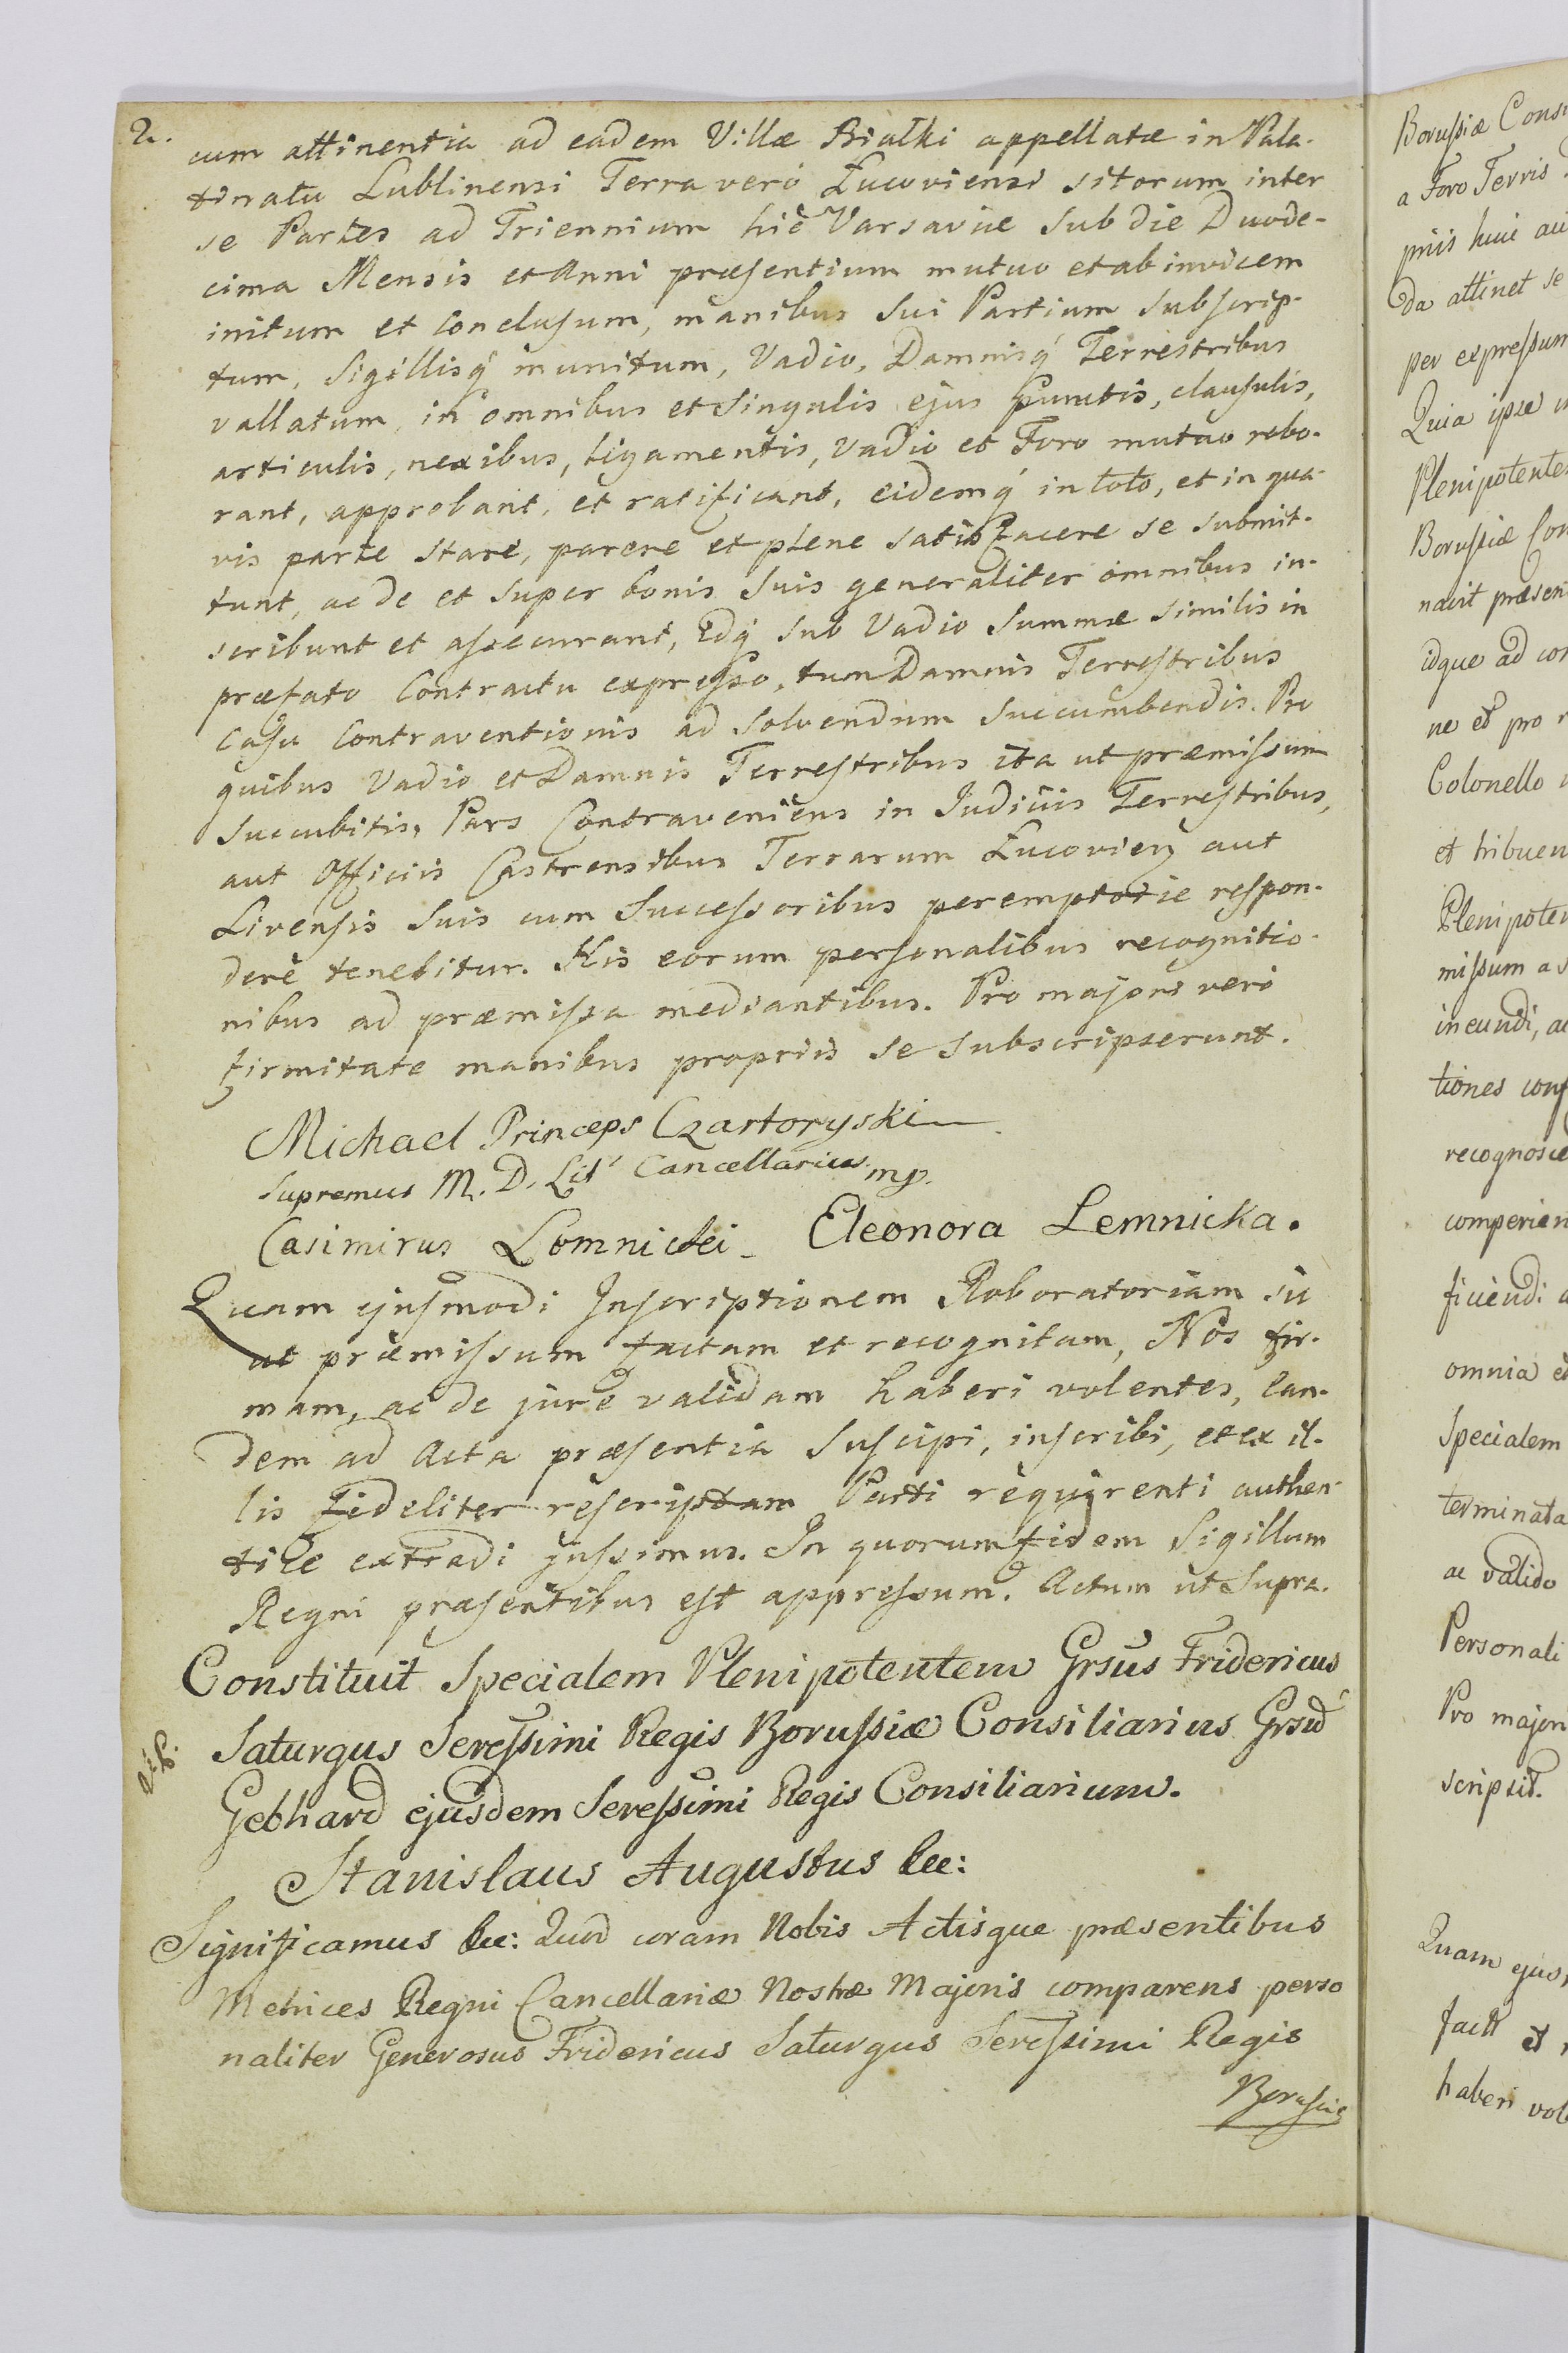 2.
cum attinentia ad eadem Villæ Białki appellatæ in Pala-
tinatu Lublinensi Terra vero Łucoviensi sitorum inter
se Partes ad Triennium hic Varsaviæ sub die Duode-
cima Mensis et Anni præsentium mutuo et ab invicem
initum et conclusum, manibus sui Partium subscrip-
tum, Sigillisq́ munitum, Vadio, Damnisq́ Terrestribus
vallatum, in omnibus et singulis ejus punctis, clausulis,
articulis, nexibus, ligamentis, vadio et Foro mutuo robo-
rant, approbant, et ratificant, eidemq́ in toto, et in qua-
vis parte stare, parere et plene satisfacere se submit-
tunt, ac de et super bonis suis generaliter omnibus in-
scribunt et assecurant, Idq́ sub Vadio Summæ similis in
præfato Contractu expresso, tum Damnis Terrestribus
Casu Contraventionis ad solvendum succumbendis. Pro
quibus Vadio et Damnis Terrestribus ita ut præmissum
succubitis, Pars Contraveniens in Judiciis Terrestribus,
aut Officiis Castrensibus Terrarum Łucovien aut
Livensis suis cum Successoribus peremptorie respon-
dere tenebitur. His eorum personalibus recognitio-
nibus ad præmissa mediantibus. Pro majori vero
firmitate manibus propriis se subscripserunt.
Michael Princeps Czartoryski
Supremus M. D. Lit Cancellarius mp.
Casimirus Lomnicki - Eleonora Lemnicka.
Quam ejusmodi Inscriptionem Roboratoriam sic
ut præmissum factam et recognitam, Nos fir-
mam, ac de jure validam haberi volentes, Ean-
dem ad Acta præsentia suscipi, inscribi, et ex il-
lis fideliter rescriptam Parti requirenti authen-
tice extradi jussimus. In quorum fidem Sigillum
Regni præsentibus est appressum. Actum ut Supra.
Constituit Specialem Plenipotentem Grsus Fridericus
Saturgus Seressimi Regis Borussiæ Consiliarius Grsu
Gebhard ejusdem Seressimi Regis Consiliarium.
Stanislaus Augustus &c:
Significamus &c: Quod coram Nobis Actisque præsentibus
Metrices Regni Cancellariæ Nostræ Majoris comparens perso
naliter Generosus Fridericus Saturgus Seressimi Regis
Borussiæ
Borussiæ
a Foro Terris
priis huic
Da attinet se
per expressum
Quia ipse
Plenipotente
Borussiæ Con
navit præsen
idque ad
ne et pro
Colonello
et tribuen
Plenipoten
missum a
ineundi,
tiones
recognosce
comperien
ficiendi
omnia
Specialem
terminata
ac valido
Personali
Pro majori
scripsit.
Quam ejus
fact et
haberi vol